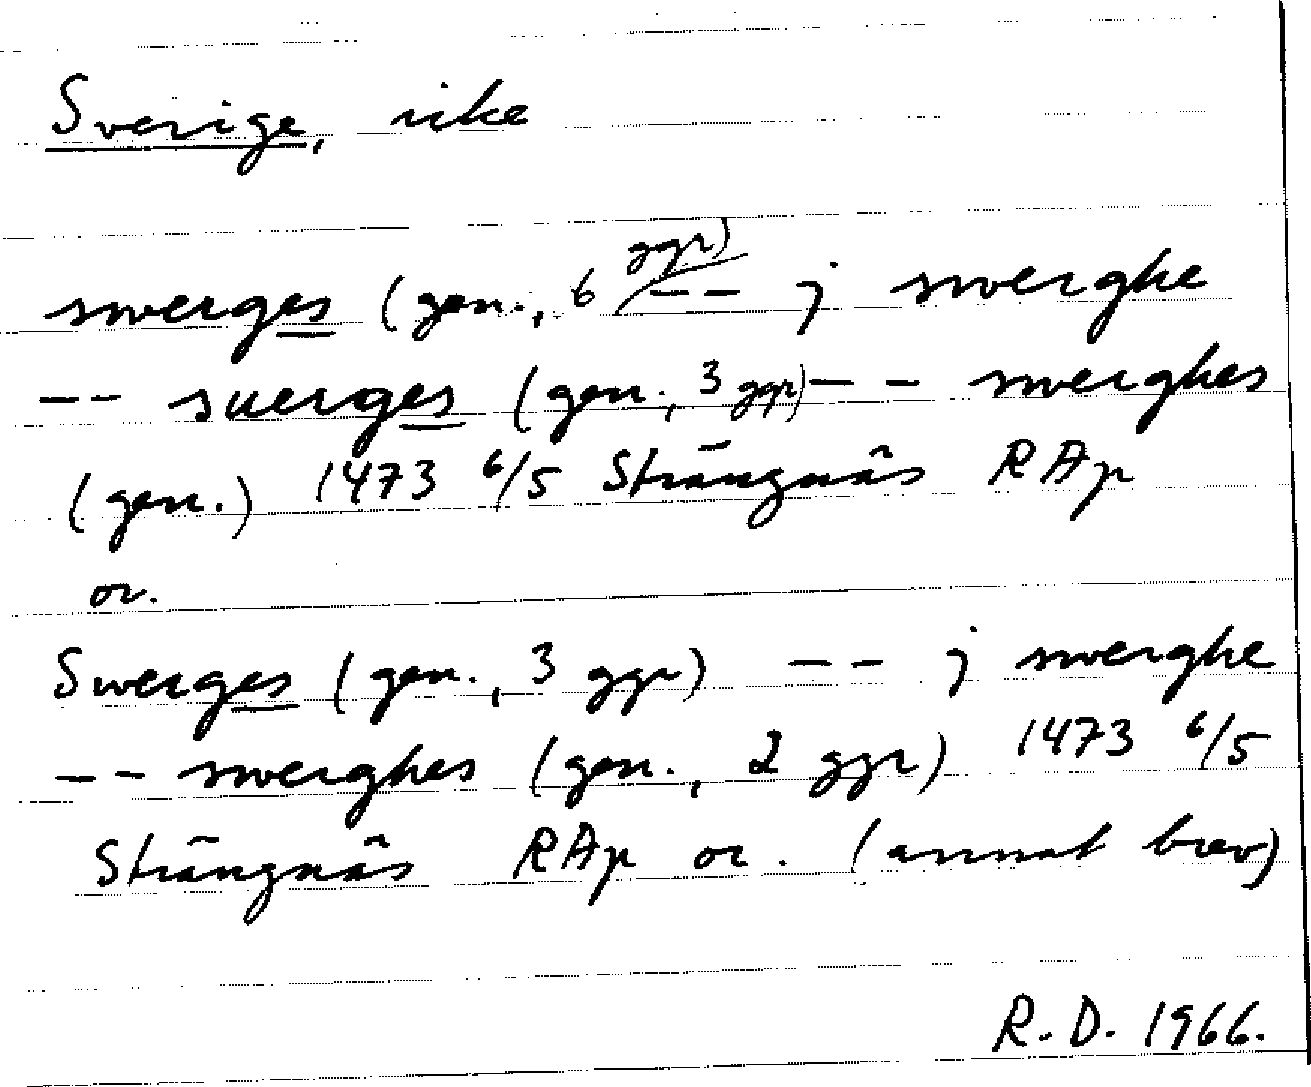 Sverige, rike
swerges (gen., 6 ggr) -- j swerghe
-- suerges (gen., 3 ggr) -- swerghes
(gen.) 1473 6/5 Strängnäs RAp
or.
Swerges (gen., 3 ggr) -- j swerghe
-- swerghes (gen., 2 ggr) 1473 6/5
Strängnäs RAp or. (annat brev)
R.D. 1966.